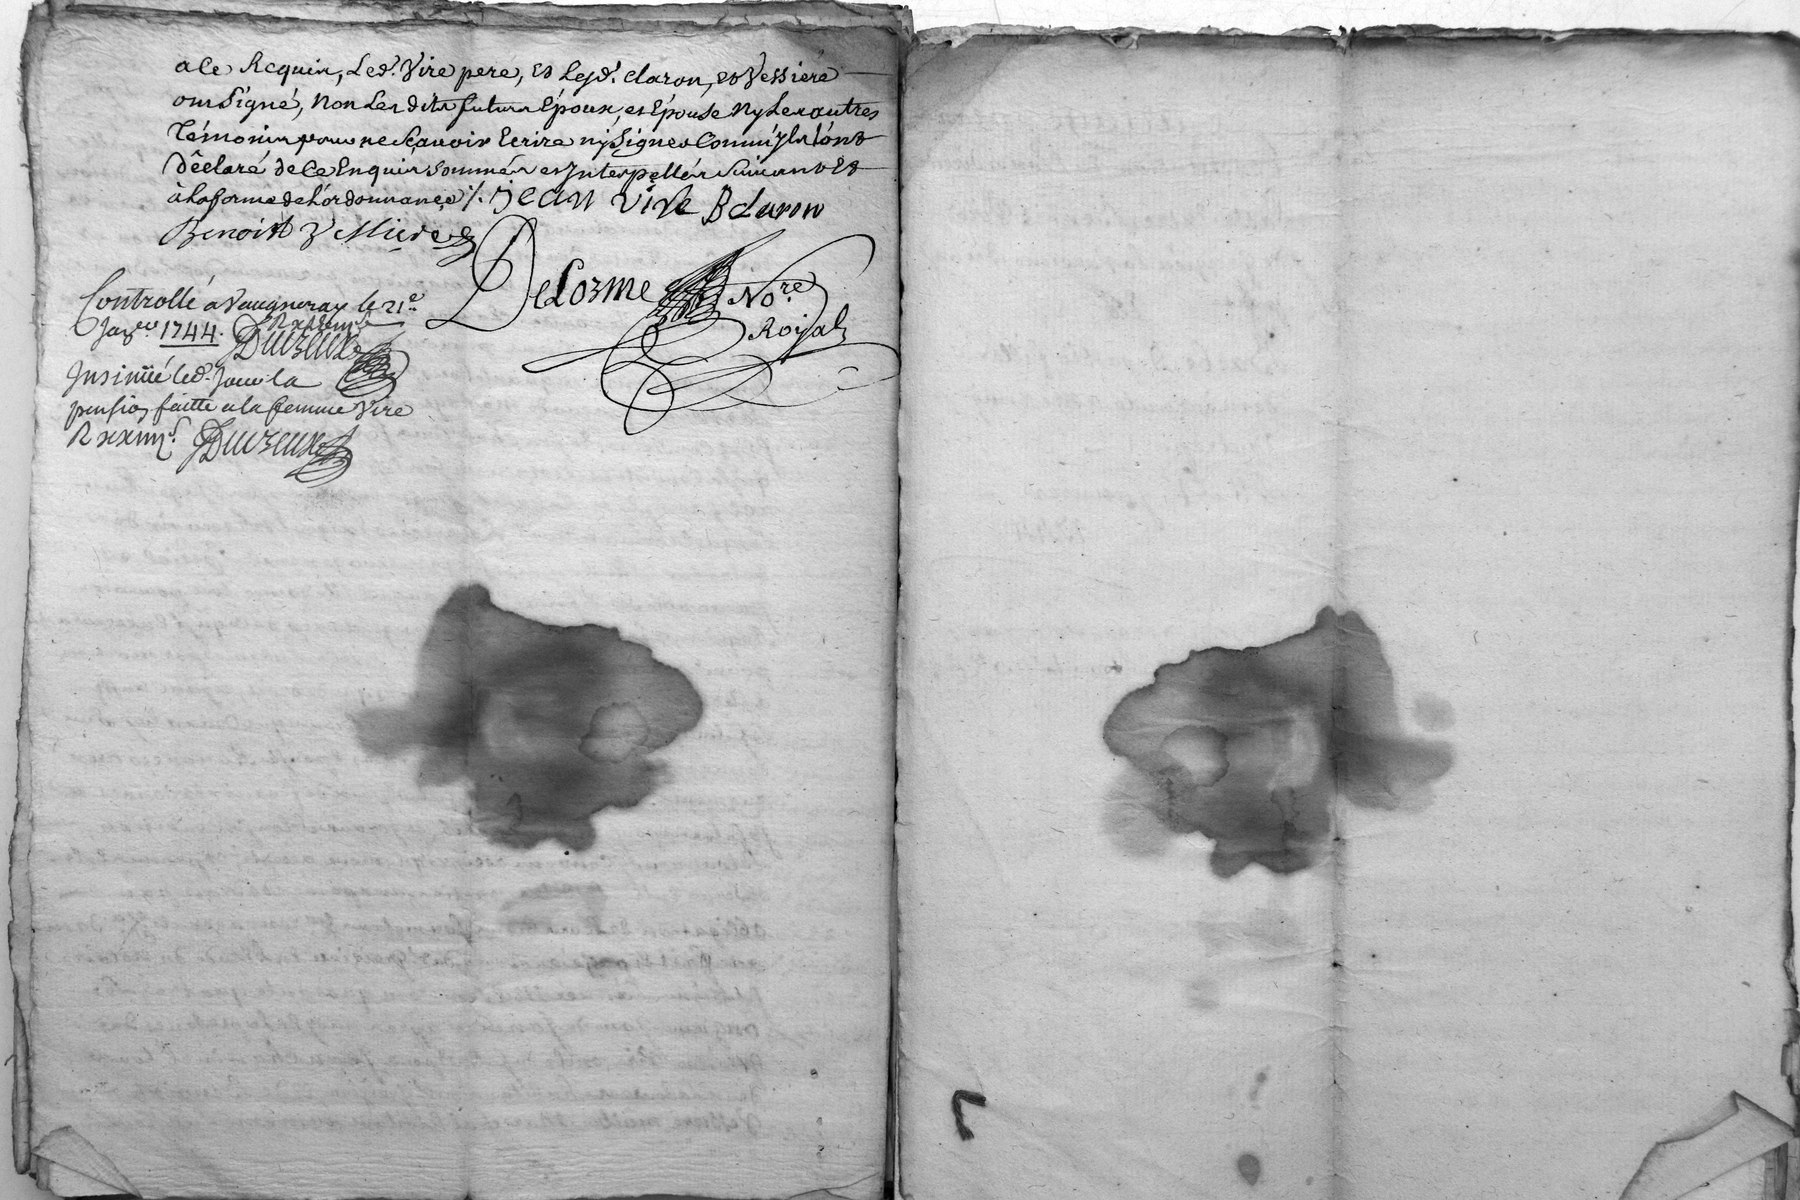 a ce Requis, Led. Vire pere, et Lesd. Claron, et Vessiere
ont Signé, Non Les dits futurs Epoux, et Epouse Ny Les autres
Témoins pour ne Sçavoir Ecrire ny Signer Comm'ils l'ont
Déclaré de Ce Enquis Sommés et Interpellés Suivant Et
à la forme de L'ordonnance /. jean vire B claron
Benoist Vessiere
Delorme No.re
Royal
Controllé a Vaugneray le 21.e
Janv.er 1744.
Duizeux
Insinüé led. Jour la
pension faitte a la femme Vire
Duizeux